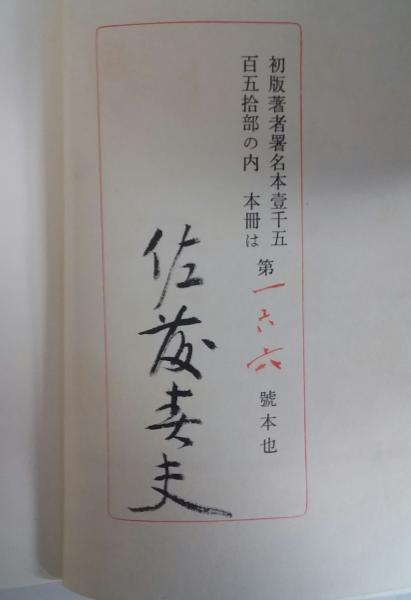 初版著者署名本壹千五
百五拾部の内 本冊は
第一六六號本也
佐藤春夫